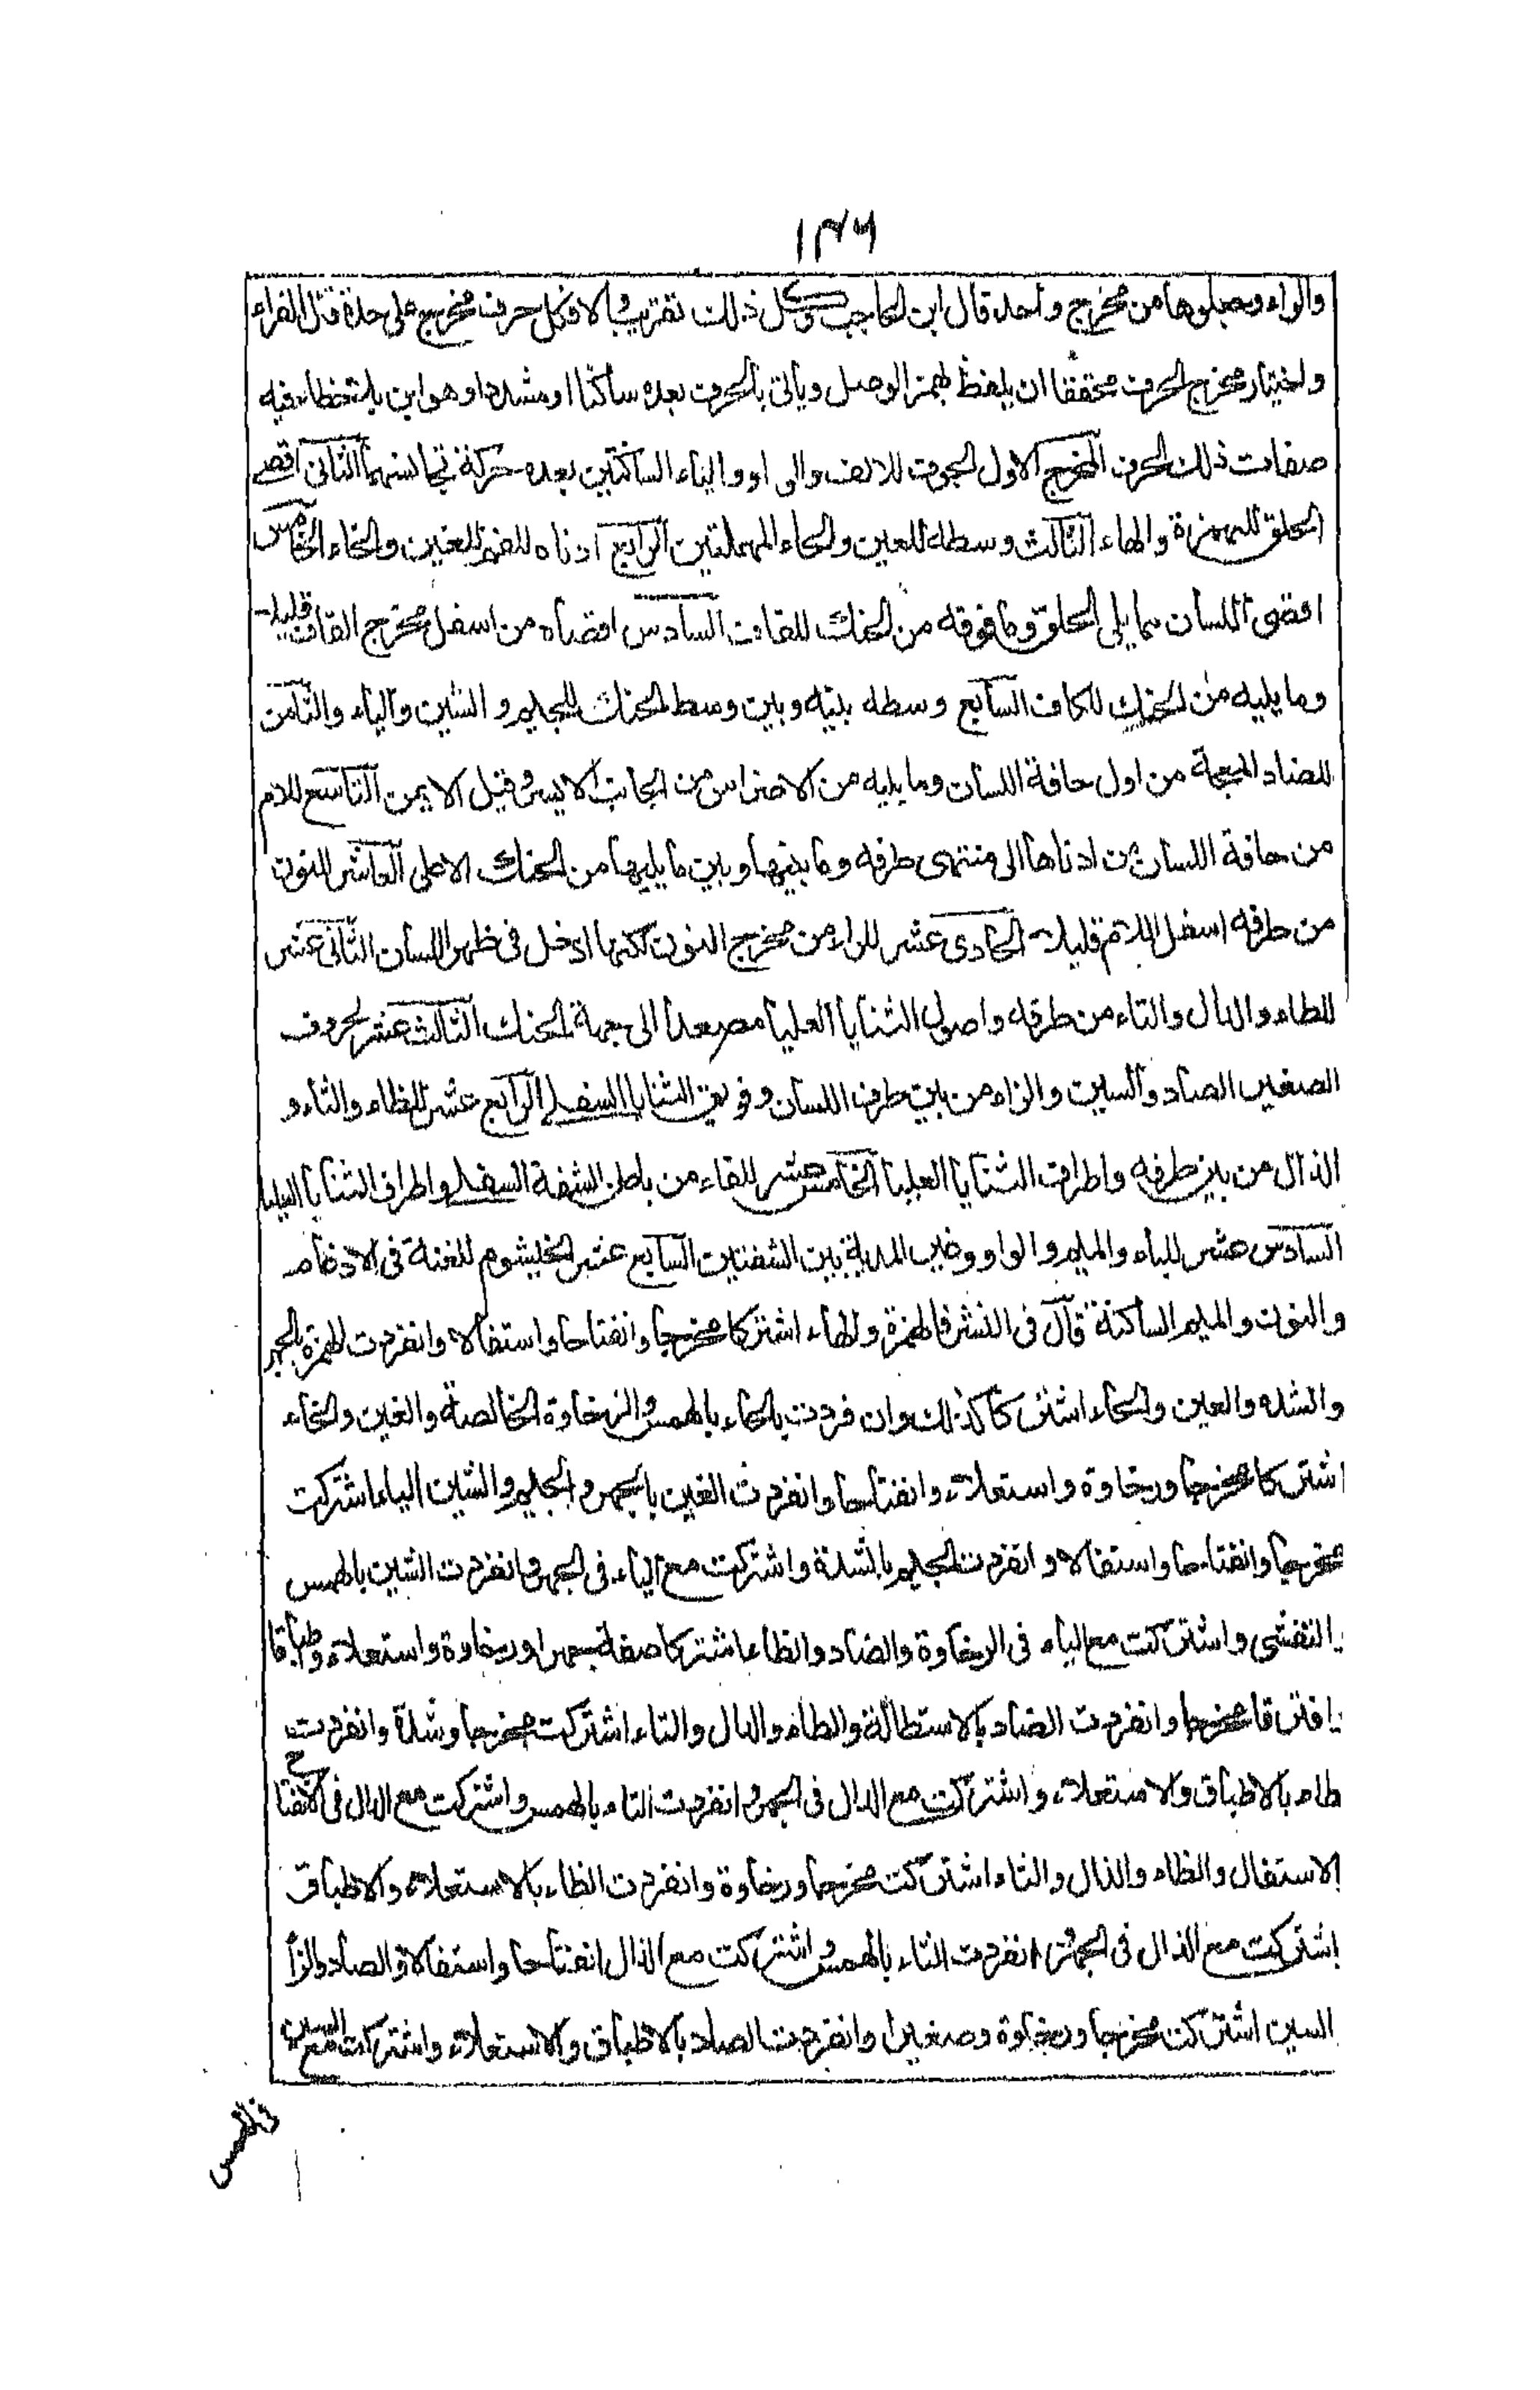 ١٣٦
والراء وجعلوها من مخرج واحد قال ابن الحاجب وكل ذلك تقريب والا فكل حرف مخرج على حدة قال الفراء
واختيار مخرج الحرف محققا ان يلفظ بهمز الوصل وياتى بالحرف بعده ساكنا او مشددا وهو ابن يلاحظا فيه
صفات ذلك الحرف المخرج الاول الجوف للالف والواو والياء الساكنتين بعده حركة تجانسهما الثانى اقصى
الحلق للهمزة والهاء الثالث وسطه للعين والحاء المهملتين الرابع ادناه للفم للغين والخاء الخامس
اقصى اللسان مما يلى الحلق وما فوقه من الحنك للقاف السادس اقصاه من اسفل مخرج القاف قليلا
وما يليه من الحنك للكاف السابع وسطه بينه وبين وسط الحنك للجيم والشين والياء والثامن
للضاد المعجمة من اول حافة اللسان وما يليه من الاضراس من الجانب الايسر وقيل الايمن التاسع للام
من حافة اللسان من ادناها الى منتهى طرفه وما بينها وبين ما يليها من الحنك الاعلى العاشر للنون
من طرفه اسفل اللام قليلا الحادى عشر للراء من مخرج النون لكنها ادخل فى ظهر اللسان الثانى عشر
للطاء والدال والتاء من طرفه واصول الثنايا العليا مصعدا الى جهة الحنك الثالث عشر لحروف
الصفير الصاد والسين والزاء من بين طرف اللسان وفويق الثنايا السفلى الرابع عشر للظاء والثاء و
الذال من بين طرفه واطراف الثنايا العليا الخامس عشر للفاء من باطن الشفة السفلى واطراف الثنايا العليا
السادس عشر للباء والميم والواو وغير المدية بين الشفتين السابع عشر الخيشوم للغنة فى الادغام
والنون والميم الساكنة قال فى النشر فالهمزة والهاء اشتركا مخرجا وانفتاحا واستفالا وانفردت الهمزة بالجهر
والشده والعين والحاء اشتركا كذلك وان فردت بالحاء بالهمس والرخاوة الخالصة والغين والخاء
اشتركا مخرجا ورخاوة واستعلاء وانفتاحا وانفردت الغين بالجهر والجيم والشين الياء اشتركت
مخرجا وانفتاحا واستفالا وانفردت الجيم بالشدة واشتركت مع الياء فى الجهر وانفردت الشين بالهمس
التفشى واشتركت مع الياء فى الرخاوة والضاد والظاء اشتركا صفة جهرا ورخاوة واستعلاء وطباقا
افترقا مخرجا وانفردت الضاد بالاستطالة والطاء والدال والتاء اشتركت مخرجا وشدة وانفردت
طاء بالاطباق والاستعلاء واشتركت مع الدال فى الجهر وانفردت التاء بالهمس واشتركت مع الدال فى الانفتاح
الاستفال والظاء والذال والثاء اشتركت مخرجا ورخاوة وانفردت الظاء بالاستعلاء والاطباق
اشتركت مع الذال فى الجهر وانفردت الثاء بالهمس واشتركت مع الذال انفتاحا واستفالا والصاد والزا
السين اشتركت مخرجا ورخاوة وصفيرا وانفردت الصاد بالاطباق والاستعلاء واشتركت مع السين